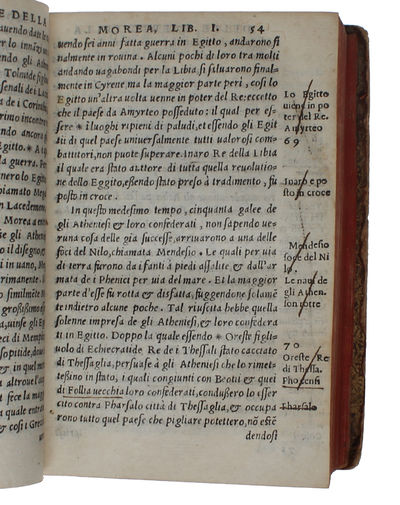 MOREA, LIB. I. 54
uendo sei anni fatta guerra in Egitto, andarono fi
nalmente in rouina. Alcuni pochi di loro tra molti
andando uagabondi per la Libia si saluarono final-
mente in Cyrene ma la maggior parte perì, cosi lo
Egitto un'altra uolta uenne in poter del Re: eccetto
che il paese da Amyrteo posseduto: il qual per es-
sere * i luoghi ripieni di paludi, et essendo gli Egit
tij di quel paese uniuersalmente tutti ualorosi com-
battitori, non puote superare. Inaro Re della Libia
il quale era stato auttore di tutta quella reuolutio-
ne dello Eggito, essendo stato preso à tradimento, fu
posto in croce.
In questo medesimo tempo, cinquanta galee de
gli Atheniesi & loro confederati, non sapendo ue-
runa cosa delle gia successe, arriuarono a una delle
foci del Nilo, chiamata Mendesio. Le quali per uia
di terra furono da i fanti à piedi assalite & dall'ar
mata de i Phenici per uia del mare. Et la maggior
parte d'esse fu rotta & disfatta, fuggendone solamē
te indietro alcune poche. Tal riuscita hebbe quella
solenne impresa de gli Atheniesi, & loro confedera
ti in Egitto. Doppo la quale essendo * Oreste figli-
uolo di Echecratide Re de i Thessali stato cacciato
di Thessaglia, persuase à gli Atheniesi che lo rimet-
tesino in stato, i quali congiunti con Beotij & quei
di Follia uecchia loro confederati, condussero lo esser
cito contra Pharsalo città di Thessaglia, & occupa
rono tutto quel paese che pigliare potettero, nō essē
dendosi
Lo Egitto
uiene in po
ter del Re.
Amyrteo
69
Inaro e po
sto in croce
Mendesio
foce del Ni
lo.
Le naui de
gli Athen
son rotte
70
Oreste Re
di Thessa.
Phocensi
Pharsalo